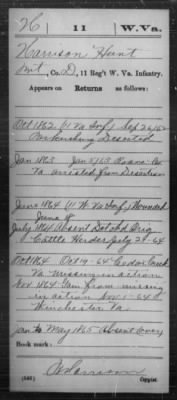 H | 11 | W. Va.
Harrison Hunt
Pvt, Co. D, 11 Reg't W. Va. Infantry.
Appears on Returns as follows:
Oct 1862 (11 Va Inf) Sep 26/62
Deserted
Jan 1863 Jan 5/63 Roane Co
Va arrested from Desertion
June 1864 (11 W. Va Inf) Wounded
June 8
July 1864 Absent Det
Cattle Herder July 29-64
Oct 1864 Oct 19-64 Cedar Creek
Va missing in action
Nov 1864 from missing
in action Nov 1-64
Winchester Va
Jan to May 1865 Absent
Book mark:
(546)
Copyist.